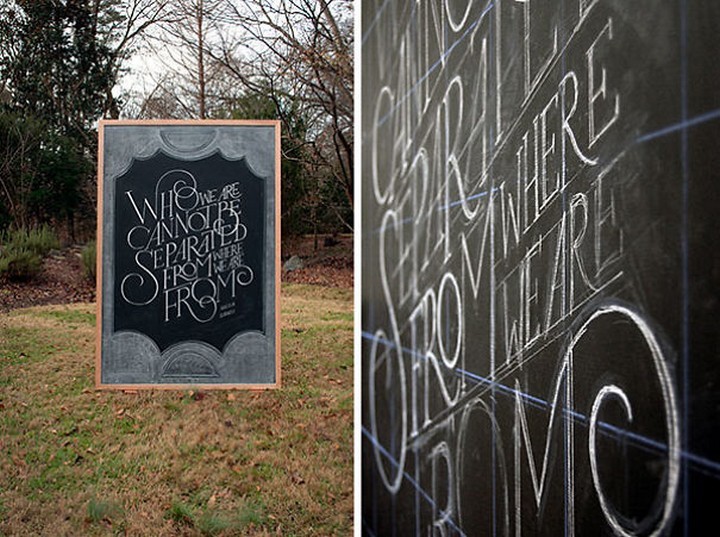 WHO WE ARE
CANNOT BE
SEPARATED
FROM WHERE
WE ARE
FROM
CANNOT
SEPARATED
FROM WHERE
WE ARE
FROM